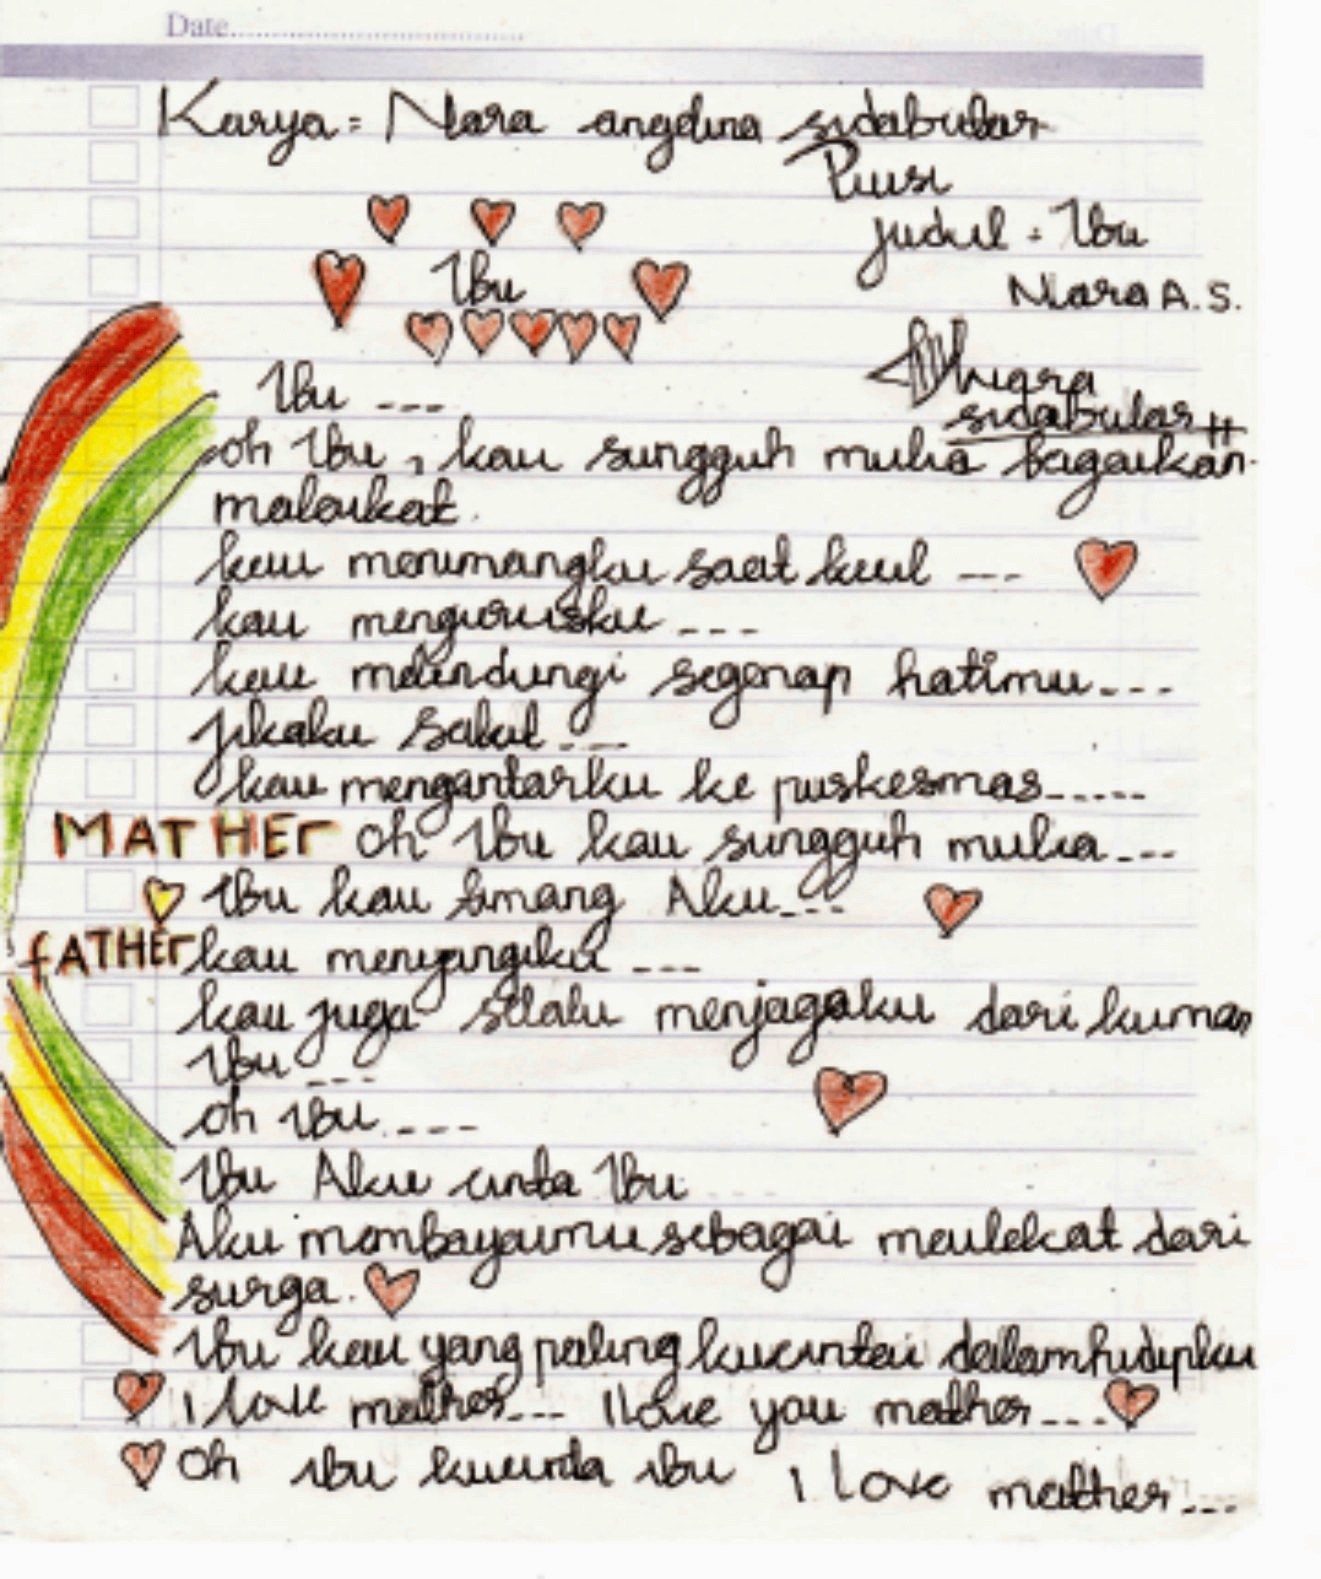 Date
Karya = Nara angelina sidabutar
Puisi
judul = Ibu
Ibu
Nara A.S.
Ibu ---
sidabutar
oh Ibu, kau sungguh mulia bagaikan
malaikat.
kau menimangku saat kecil ---
kau mengurusku ---
kau melindungi segenap hatimu ---
jikaku sakit ---
kau mengantarku ke puskesmas-----
MATHEr oh Ibu kau sungguh mulia ---
Ibu kau timang Aku ---
fATHEr kau menyangiku ---
kau juga selalu menjagaku dari kuman
Ibu ---
oh ibu ----
Ibu Aku cinta Ibu
Aku membayaimu sebagai meulekat dari
surga.
Ibu kau yang paling kucintai dalam hidupku
I love mather--- I love you mather---
Oh ibu kucinta ibu I love mather---